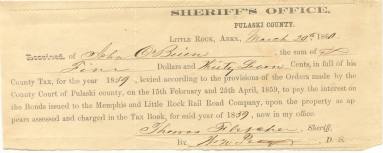 SHERIFF'S OFFICE,
PULASKI COUNTY.
LITTLE ROCK, ARKS. March 20th 1860.
Received, of John O'Brien the sum of $
Five Dollars and Thirty Cents, in full of his
County Tax, for the year 1859, levied according to the provisions of the Orders made by the
County Court of Pulaski county, on the 15th February and 25th April, 1859, to pay the interest on
the Bonds issued to the Memphis and Little Rock Rail Road Company, upon the property as ap
pears assessed and charged in the Tax Book, for said year of 1859, now in my office.
Thomas Fletcher Sheriff,
By D. S.